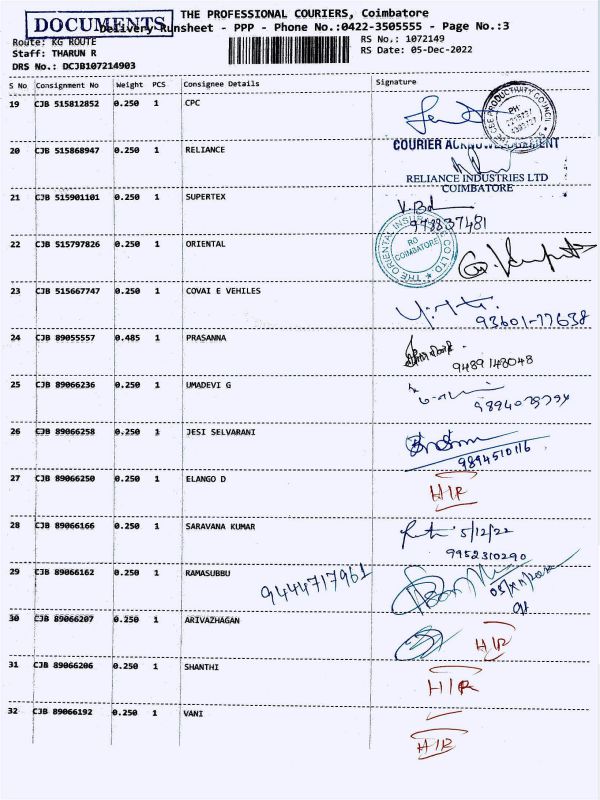 THE PROFESSIONAL COURIERS, Coimbatore
DOCUMENTS
Delivery Runsheet - PPP - Phone No.:0422-3505555 - Page No.:3
Route: KG ROUTE
RS No.: 1072149
Staff: THARUN R
RS Date: 05-Dec-2022
DRS No.: DCJB107214903
S No Consignment No Weight PCS Consignee Details Signature
19 CJB 515812852 0.250 1 CPC
PRODUCTIVITY COUNCIL
COURIER ACKNOWLEDGMENT
20 CJB 515868947 0.250 1 RELIANCE
RELIANCE INDUSTRIES LTD
COIMBATORE
21 CJB 515901101 0.250 1 SUPERTEX
22 CJB 515797826 0.250 1 ORIENTAL
THE ORIENTAL INSURANCE CO LTD
RO
COIMBATORE
23 CJB 515667747 0.250 1 COVAI E VEHILES
93601-77638
24 CJB 89055557 0.485 1 PRASANNA
9489148048
25 CJB 89066236 0.250 1 UMADEVI G
26 CJB 89066258 0.250 1 JESI SELVARANI
9894510116
27 CJB 89066250 0.250 1 ELANGO D
H/R
28 CJB 89066166 0.250 1 SARAVANA KUMAR
5/12/22
9952310290
29 CJB 89066162 0.250 1 RAMASUBBU
9444717961
30 CJB 89066207 0.250 1 ARIVAZHAGAN
H/R
31 CJB 89066206 0.250 1 SHANTHI
H/R
32 CJB 89066192 0.250 1 VANI
H/R